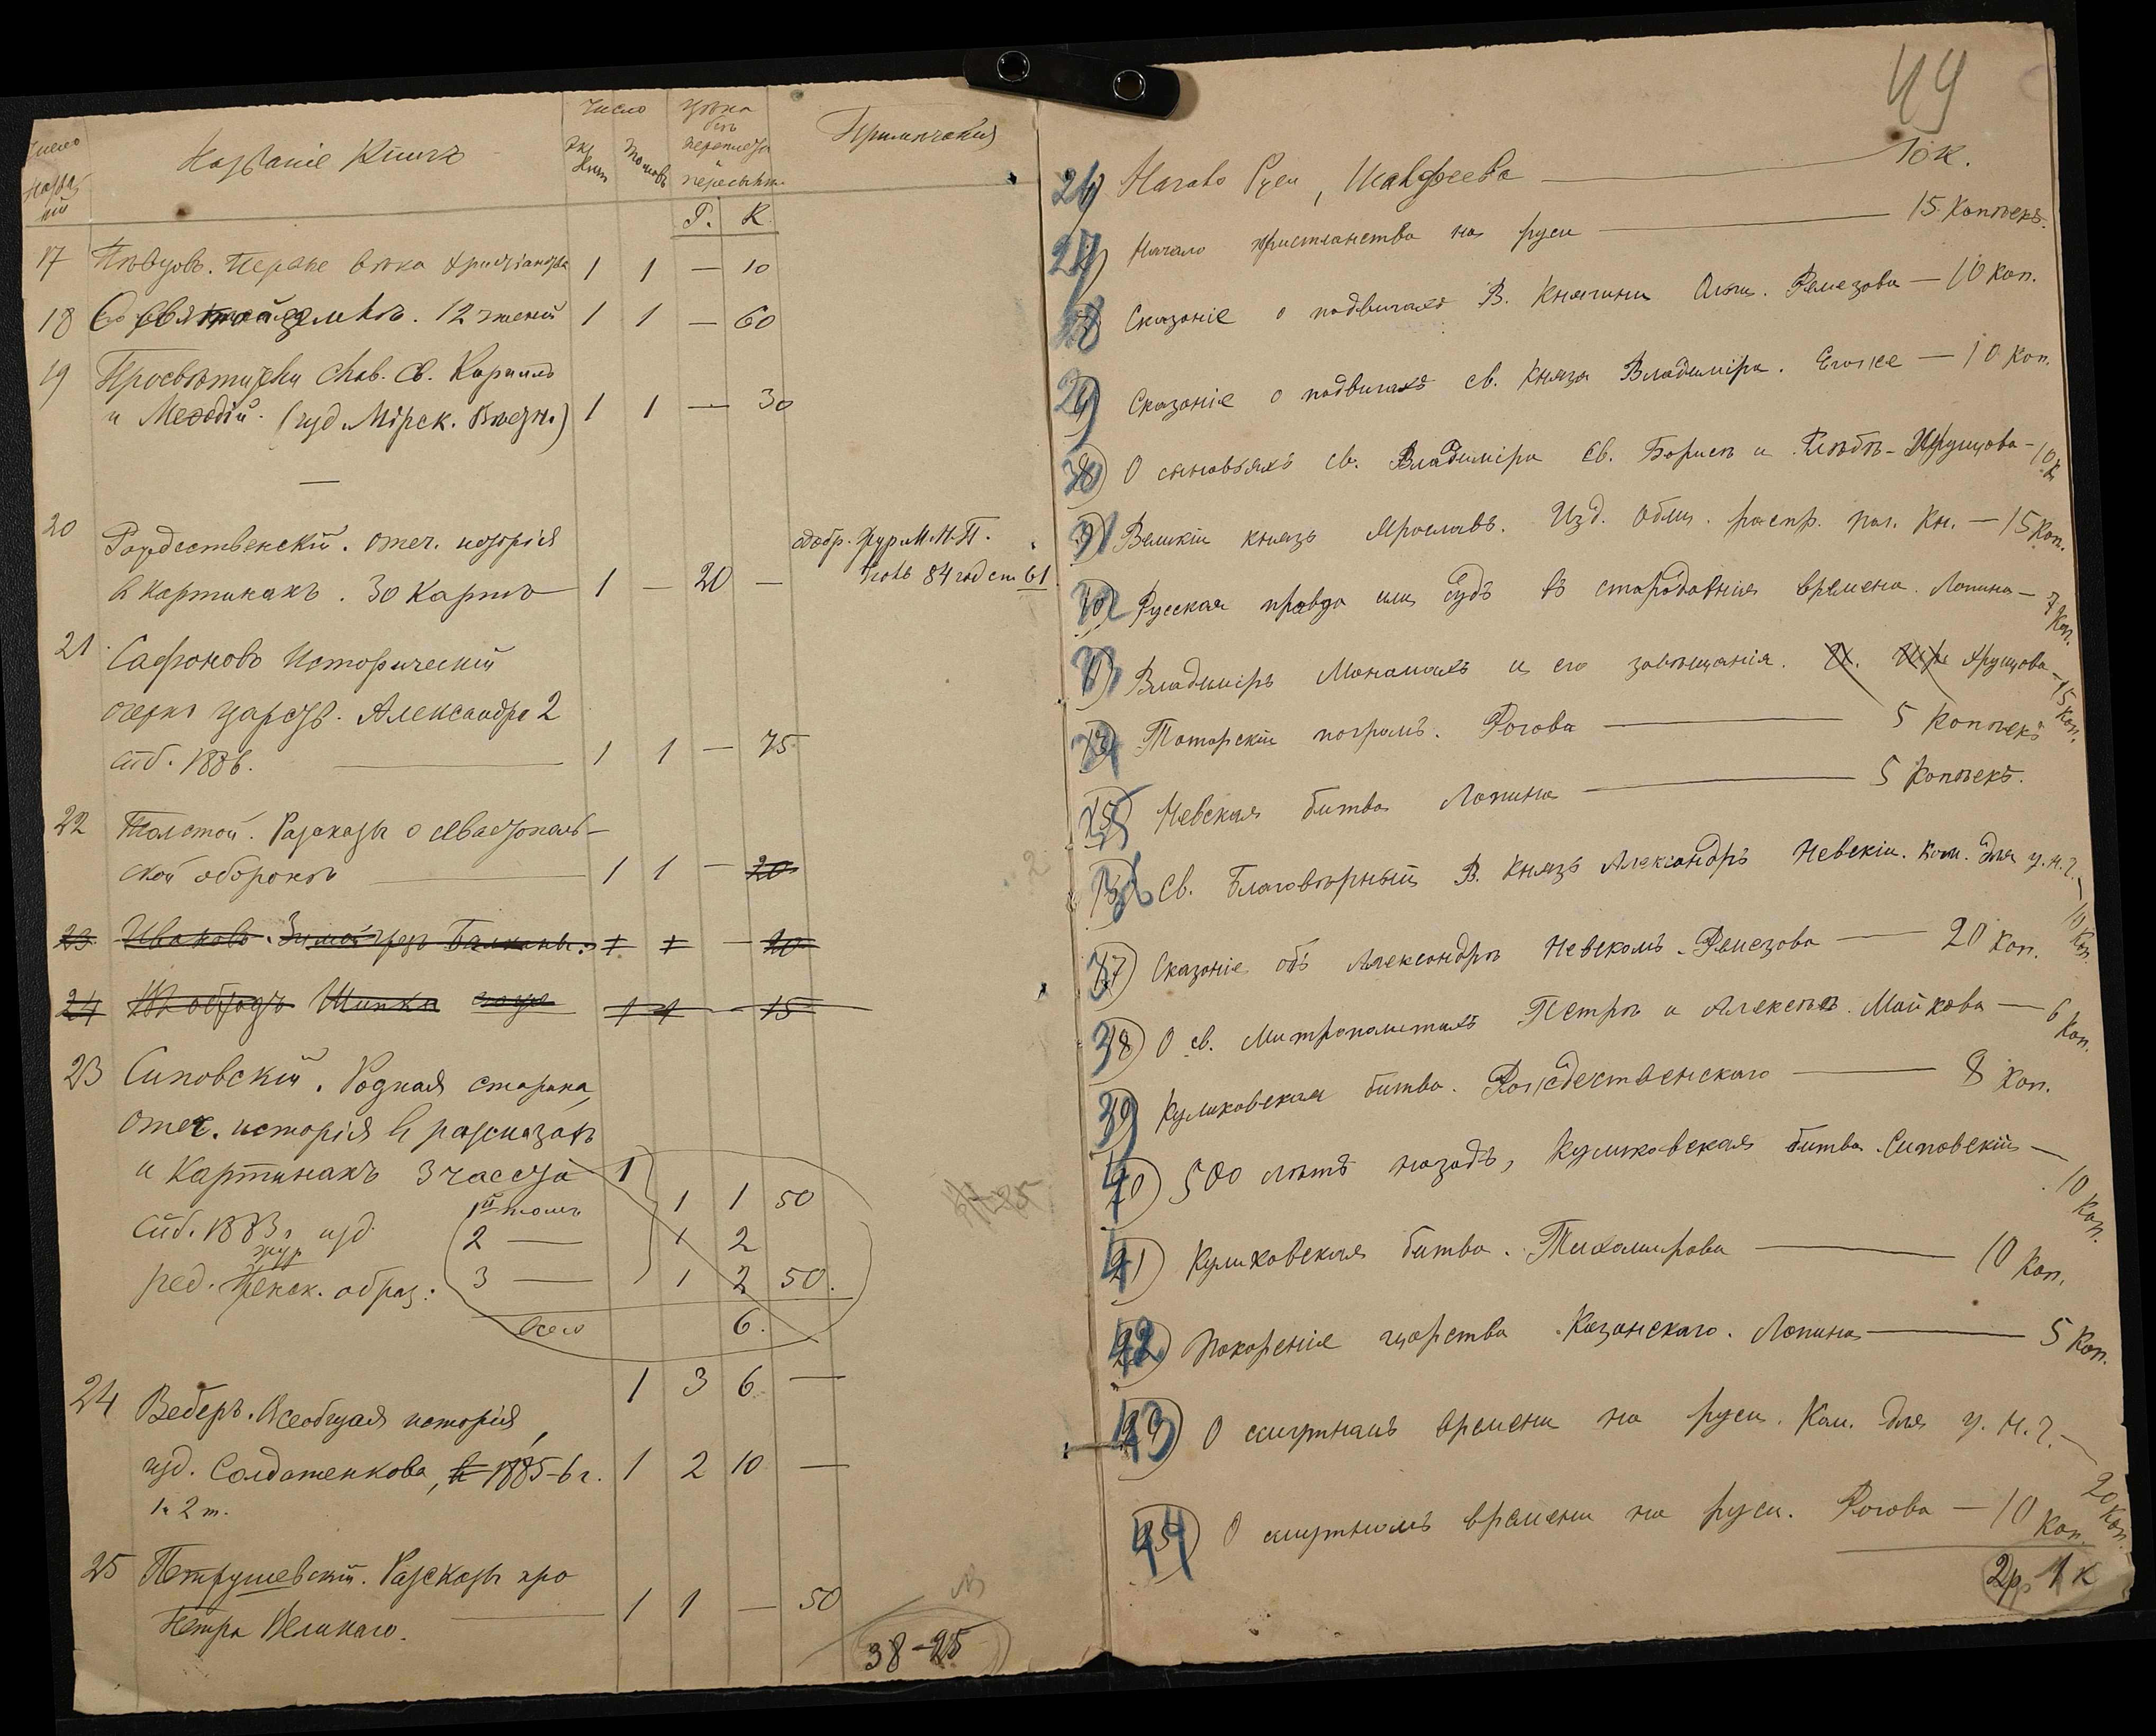 Число
назва-
ній
Названіе Книгъ
Число
Экз
Томовъ
Цѣна
безъ
переплета
и
пересылки
Примѣчанія
Р. К.
17 Пѣвцовъ. Первые вѣка христіанства 1 1 — 10
18 О святой землѣ. 12 чтеній 1 1 — 60
19 Просвѣтители слав. св. Кириллъ
и Меѳодій. (изд. Мірск. Вѣстн.) 1 1 — 30
—
20 Рождественскій. Отеч. исторія
одобр. жур. М.Н.П.
84 год ст 61
въ картинахъ. 30 картъ 1 — 20 —
21 Сафоновъ Историческій
очеркъ царств. Александра 2
спб. 1886. 1 1 — 75
22 Толстой. Разсказы о севастополь-
ской оборонѣ 1 1 — 20
23 Ивановъ. Зимой чрезъ Балканы. 1 1 — 20
24 Шипка 1 1 — 15
23 Сиповскій. Родная старина,
отеч. исторія въ разсказахъ
и картинахъ 3 части 1
1й томъ 1 1 50
спб. 1883 г. изд. 2 — 1 2
жур
ред. Женск. образ. 3 — 1 2 50.
всего 6.
1 3 6 —
24 Веберъ. Всеобщая исторія,
изд. Солдатенкова, 1885-6 г. 1 2 10 —
1 и 2 т.
25 Петрушевскій. Разсказы про
Петра Великаго. 1 1 — 50
38-25
44
26) Начало Руси, — 10 к.
27) Начало христіанства на руси — 15 копѣекъ.
28) Сказаніе о подвигахъ В. Княгини Ольги. Ремезова — 10 коп.
29) Сказаніе о подвигахъ св. Князя Владиміра. Егоже — 10 коп.
30) О сыновьяхъ св. Владиміра св. Борисѣ и Глѣбѣ - Хрущова - 10 к
31) Великій князь Ярославъ. Изд. общ. распр. пол. кн. — 15 коп.
32) Русская правда или судъ въ стародавнія времена. Лапина — 7 коп.
33) Владиміръ Мономахъ и его завѣщанія. Хрущова - 15 коп.
34) Татарскій погромъ. Рогова — 5 копѣекъ
35) Невская битва Лапина — 5 копѣекъ.
36) Св. Благовѣрный В. Князь Александръ Невскій. Ком. для у.н.ч. — 10 коп.
37) Сказаніе объ Александрѣ Невскомъ. Ремезова — 20 коп.
38) О св. Митрополитахъ Петрѣ и Алексѣѣ. Майкова — 6 коп.
39) Куликовская битва. Рождественскаго — 8 коп.
40) 500 лѣтъ назадъ, Куликовская битва. Сиповскій — 10 коп.
41) Куликовская битва. Тихомирова — 10 коп.
42) Покореніе царства Казанскаго. Лапина — 5 коп.
43) О смутномъ времени на руси. Ком. для у.н.ч. — 20 коп.
44) О смутномъ времени на руси. Рогова — 10 коп.
2 р. 1 к